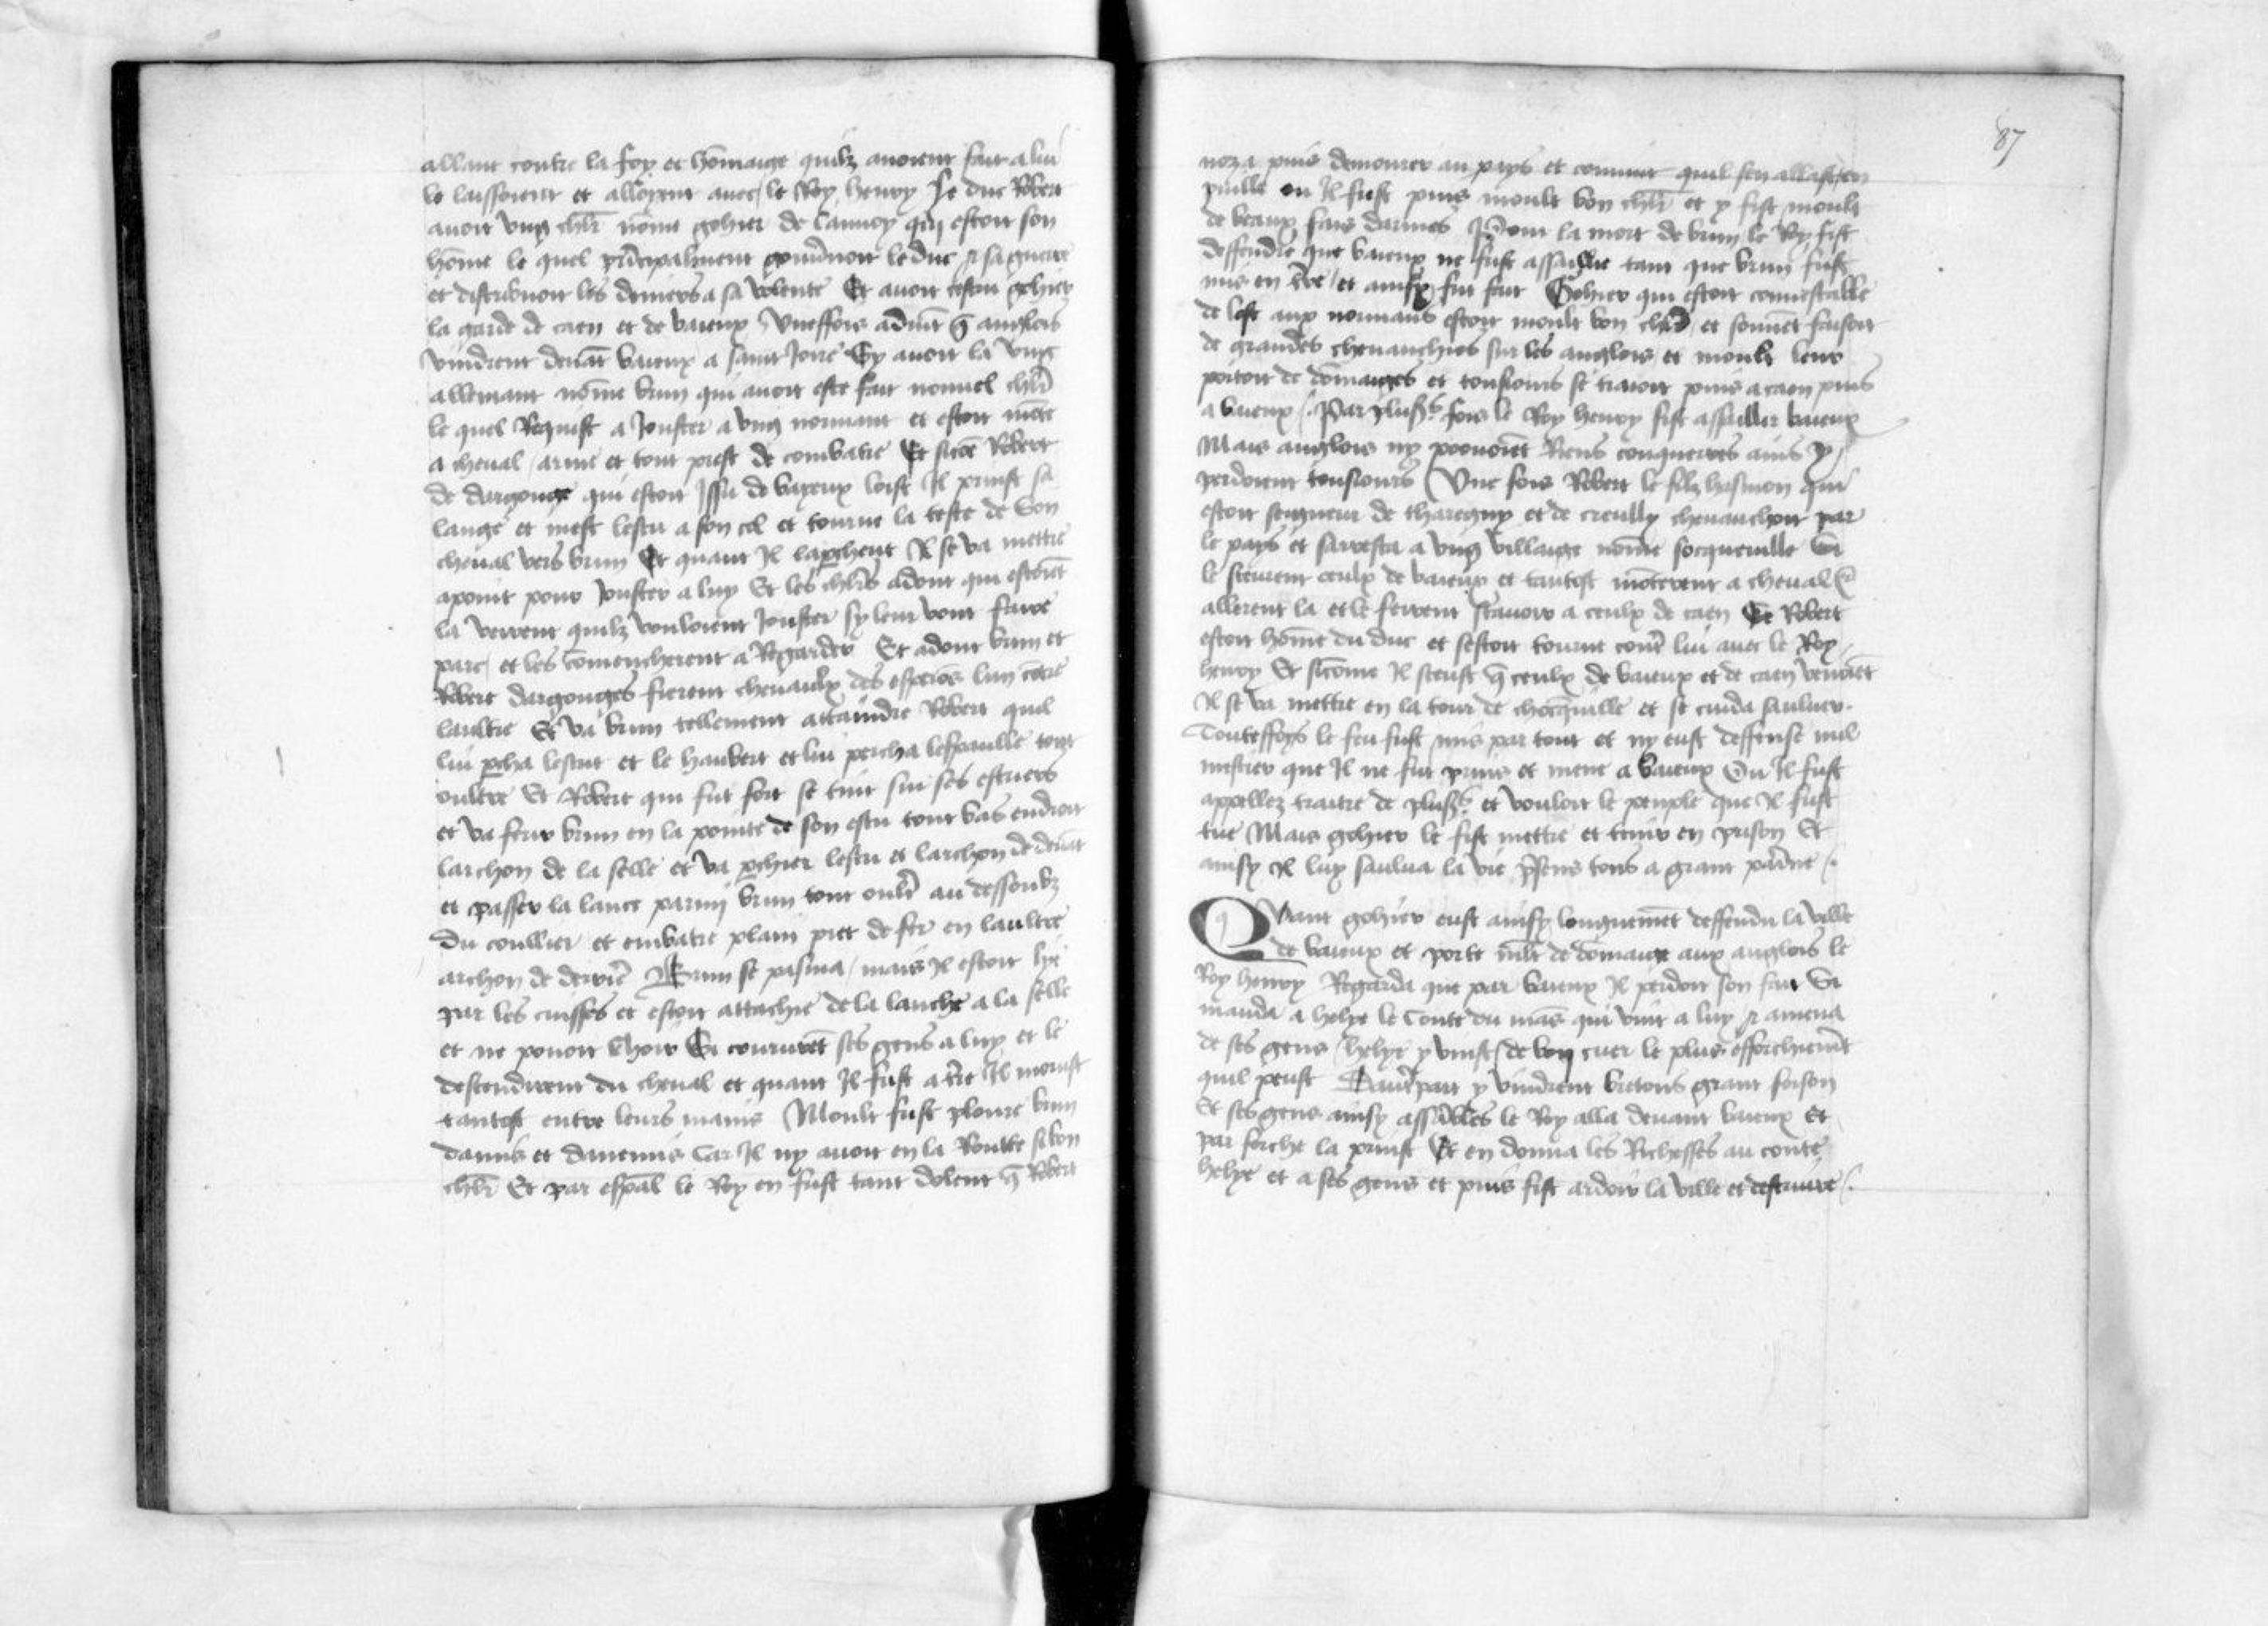 allant contre la foy et hōmaige quilz auoient fait a lui
le laissoient et alloyent auec le Roy henry Le duc Robert
auoit vng chlr̄ nōme gohier de Launoy qui estoit son
hōme le quel prīcipalment gouūnoit le duc et sa guerre
et distribuoit les deniers a sa volente Et auoit cestui gohier
la garde de caen et de baieux Vneffois aduīt q̄ anglois
vindrent deuāt baieux a saint Jorre Sy auoit la vng
allemant nōme brun qui auoit este fait nouuel chlr̄
le quel Requist a Jouster a vng normant et estoit mōte
a cheual arme et tout prest de combatre Et sicōe Robert
de dargouge qui estoit Jssu de bayeux loist Il prinst sa
lange et mest lescu a son col et tourne la teste de son
cheual vers brun Et quant Il laprchent Il se va mettre
apoint pour Jouster a luy Et les chlr̄s adont qui estoiēt
la virrent quilz vouloient Jouster sy leur vont faire
parc et les cōmencherent a Regarder Et adont brun et
Robert dargouges fierent cheuaulx des esperōs lun cōtre
laultre Et va brun tellement attaindre Robert quil
lui p̄cha lescut et le haubert et lui percha lespaulle tout
oultre Et Robert qui fut fort se tint sur ses estriers
et va ferir brun en la pointe de son escu tout bas endroit
larchon de la selle et va p̄chier lescu et larchon de deuāt
et passer la lance parmy brun tout oultr̄ au dessoubz
du coullier et embatre plain piet de fer en laultre
archon de derrier̄ Brun se pasma mais Il estoit lye
par les cuisses et estoit attachie de la lanche a la selle
et ne pouoit choir Si coururēt ses gens a luy et le
descendirent du cheual et quant Il fust a tr̄e Il morust
tantost entre leurs mains Moult fust ploure brun
damis et danemis Car Il ny auoit en la Routte si bon
chlr̄ Et par esp̄al le Roy en fust tant dolent q̄ Robert
87
noza puis demourer au pays et conuint quil sen allast en
puille ou Il fust puis moult bon chlr̄ et y fist moult
de beaux fais darmes la mort de brun le Roy fist
deffendre que baieux ne fust assaillie tant que brun fust
mis en tr̄re et ainsy fut fait Gohier qui estoit connestable
de lost aux normans estoit moult bon et souuēt faisoit
de grandes cheuauchies sur les anglois et moult leur
portoit de dōmaiges et tousiours se tiroit puis a caen puis
a baieux Par plus̄s fois le Roy henry fist assaillir baieux
Mais anglois ny pouoiēt Riens conquerres ains y
perdoient tousiours Vne fois Robert le filz hasmon qui
estoit seigneur de tharegny et de creully cheuauchoit par
le pays et sarresta a vng villaige nōme socqueuille Si
le sceurent ceulx de baieux et tantost mōterent a cheual et
allerent la et le feirent scauoir a ceulx de caen Ce Robert
estoit hōme du duc et sestoit tourne contr̄ lui auec le Roy
henry Et sicōme Il sceust q̄ ceulx de baieux et de caen venoiēt
Il se va mettre en la tour de chocq̄uille et se cuida sauluer
Touteffoys le feu fust mis par tout et ny eust deffense nul
mestier que Il ne fut prins et mene a baieux Ou Il fust
appellez traitre de plus̄s et vouloit le peuple que Il fust
tue Mais gohier le fist mettre et tenir en prison Et
ainsy Il luy saulua la vie p̄sens tous a grant
Quant gohier eust ainsy longuemēt deffendu la ville
de baieux et porte mlt̄ de dōmaige aux anglois le
Roy henry Regarda que par baieux Il perdoit son fait Si
manda a helye le Conte du mās qui vint a luy et amena
de ses gens helye y vinst de bon cuer le plus efforchiemēt
quil peust Daultr̄part y vindrent bretons grant foison
Et ses gens ainsy assābles le Roy alla deuant baieux et
par forche la prinst Et en donna les Richesses au conte
helye et a ses gens et puis fist ardoir la ville et destruire